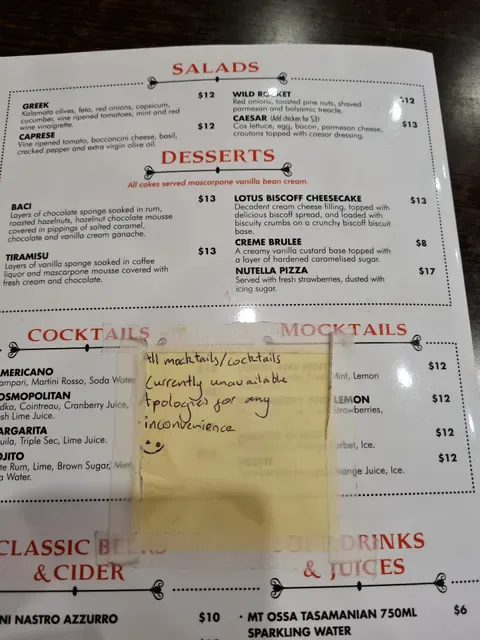 SALADS
GREEK $12
Kalamata olives, feta, red onions, capsicum,
cucumber, vine ripened tomatoes, mint and red
wine vinaigrette.
CAPRESE $12
Vine ripened tomato, bocconcini cheese, basil,
cracked pepper and extra virgin olive oil.
WILD ROCKET $12
Red onions, toasted pine nuts, shaved
parmesan and balsamic treacle.
CAESAR (Add chicken for $3) $13
Cos lettuce, egg, bacon, parmesan cheese,
croutons topped with caesar dressing.
DESSERTS
All cakes served mascarpone vanilla bean cream.
BACI $13
Layers of chocolate sponge soaked in rum,
roasted hazelnuts, hazelnut chocolate mousse
covered in pippings of salted caramel,
chocolate and vanilla cream ganache.
TIRAMISU $13
Layers of vanilla sponge soaked in coffee
liquor and mascarpone mousse covered with
fresh cream and chocolate.
LOTUS BISCOFF CHEESECAKE $13
Decadent cream cheese filling, topped with
delicious biscoff spread, and loaded with
biscuity crumbs on a crunchy biscoff biscuit
base.
CREME BRULEE $8
A creamy vanilla custard base topped with
a layer of hardened caramelised sugar.
NUTELLA PIZZA $17
Served with fresh strawberries, dusted with
icing sugar.
COCKTAILS
MERICANO
ampari, Martini Rosso, Soda Water
OSMOPOLITAN
dka, Cointreau, Cranberry Juice,
sh Lime Juice.
ARGARITA
quila, Triple Sec, Lime Juice.
OJITO
te Rum, Lime, Brown Sugar, Mint,
a Water.
All mocktails/cocktails
Currently unavailable
Apologies for any
inconvenience
MOCKTAILS
Mint, Lemon $12
LEMON $12
trawberries,
$12
orbet, Ice.
$12
range Juice, Ice.
CLASSIC BEERS
& CIDER
NI NASTRO AZZURRO $10
DRINKS
& JUICES
MT OSSA TASAMANIAN 750ML $6
SPARKLING WATER